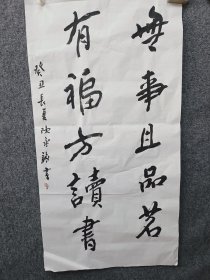 無事且品茗
有福方讀書
癸丑長夏